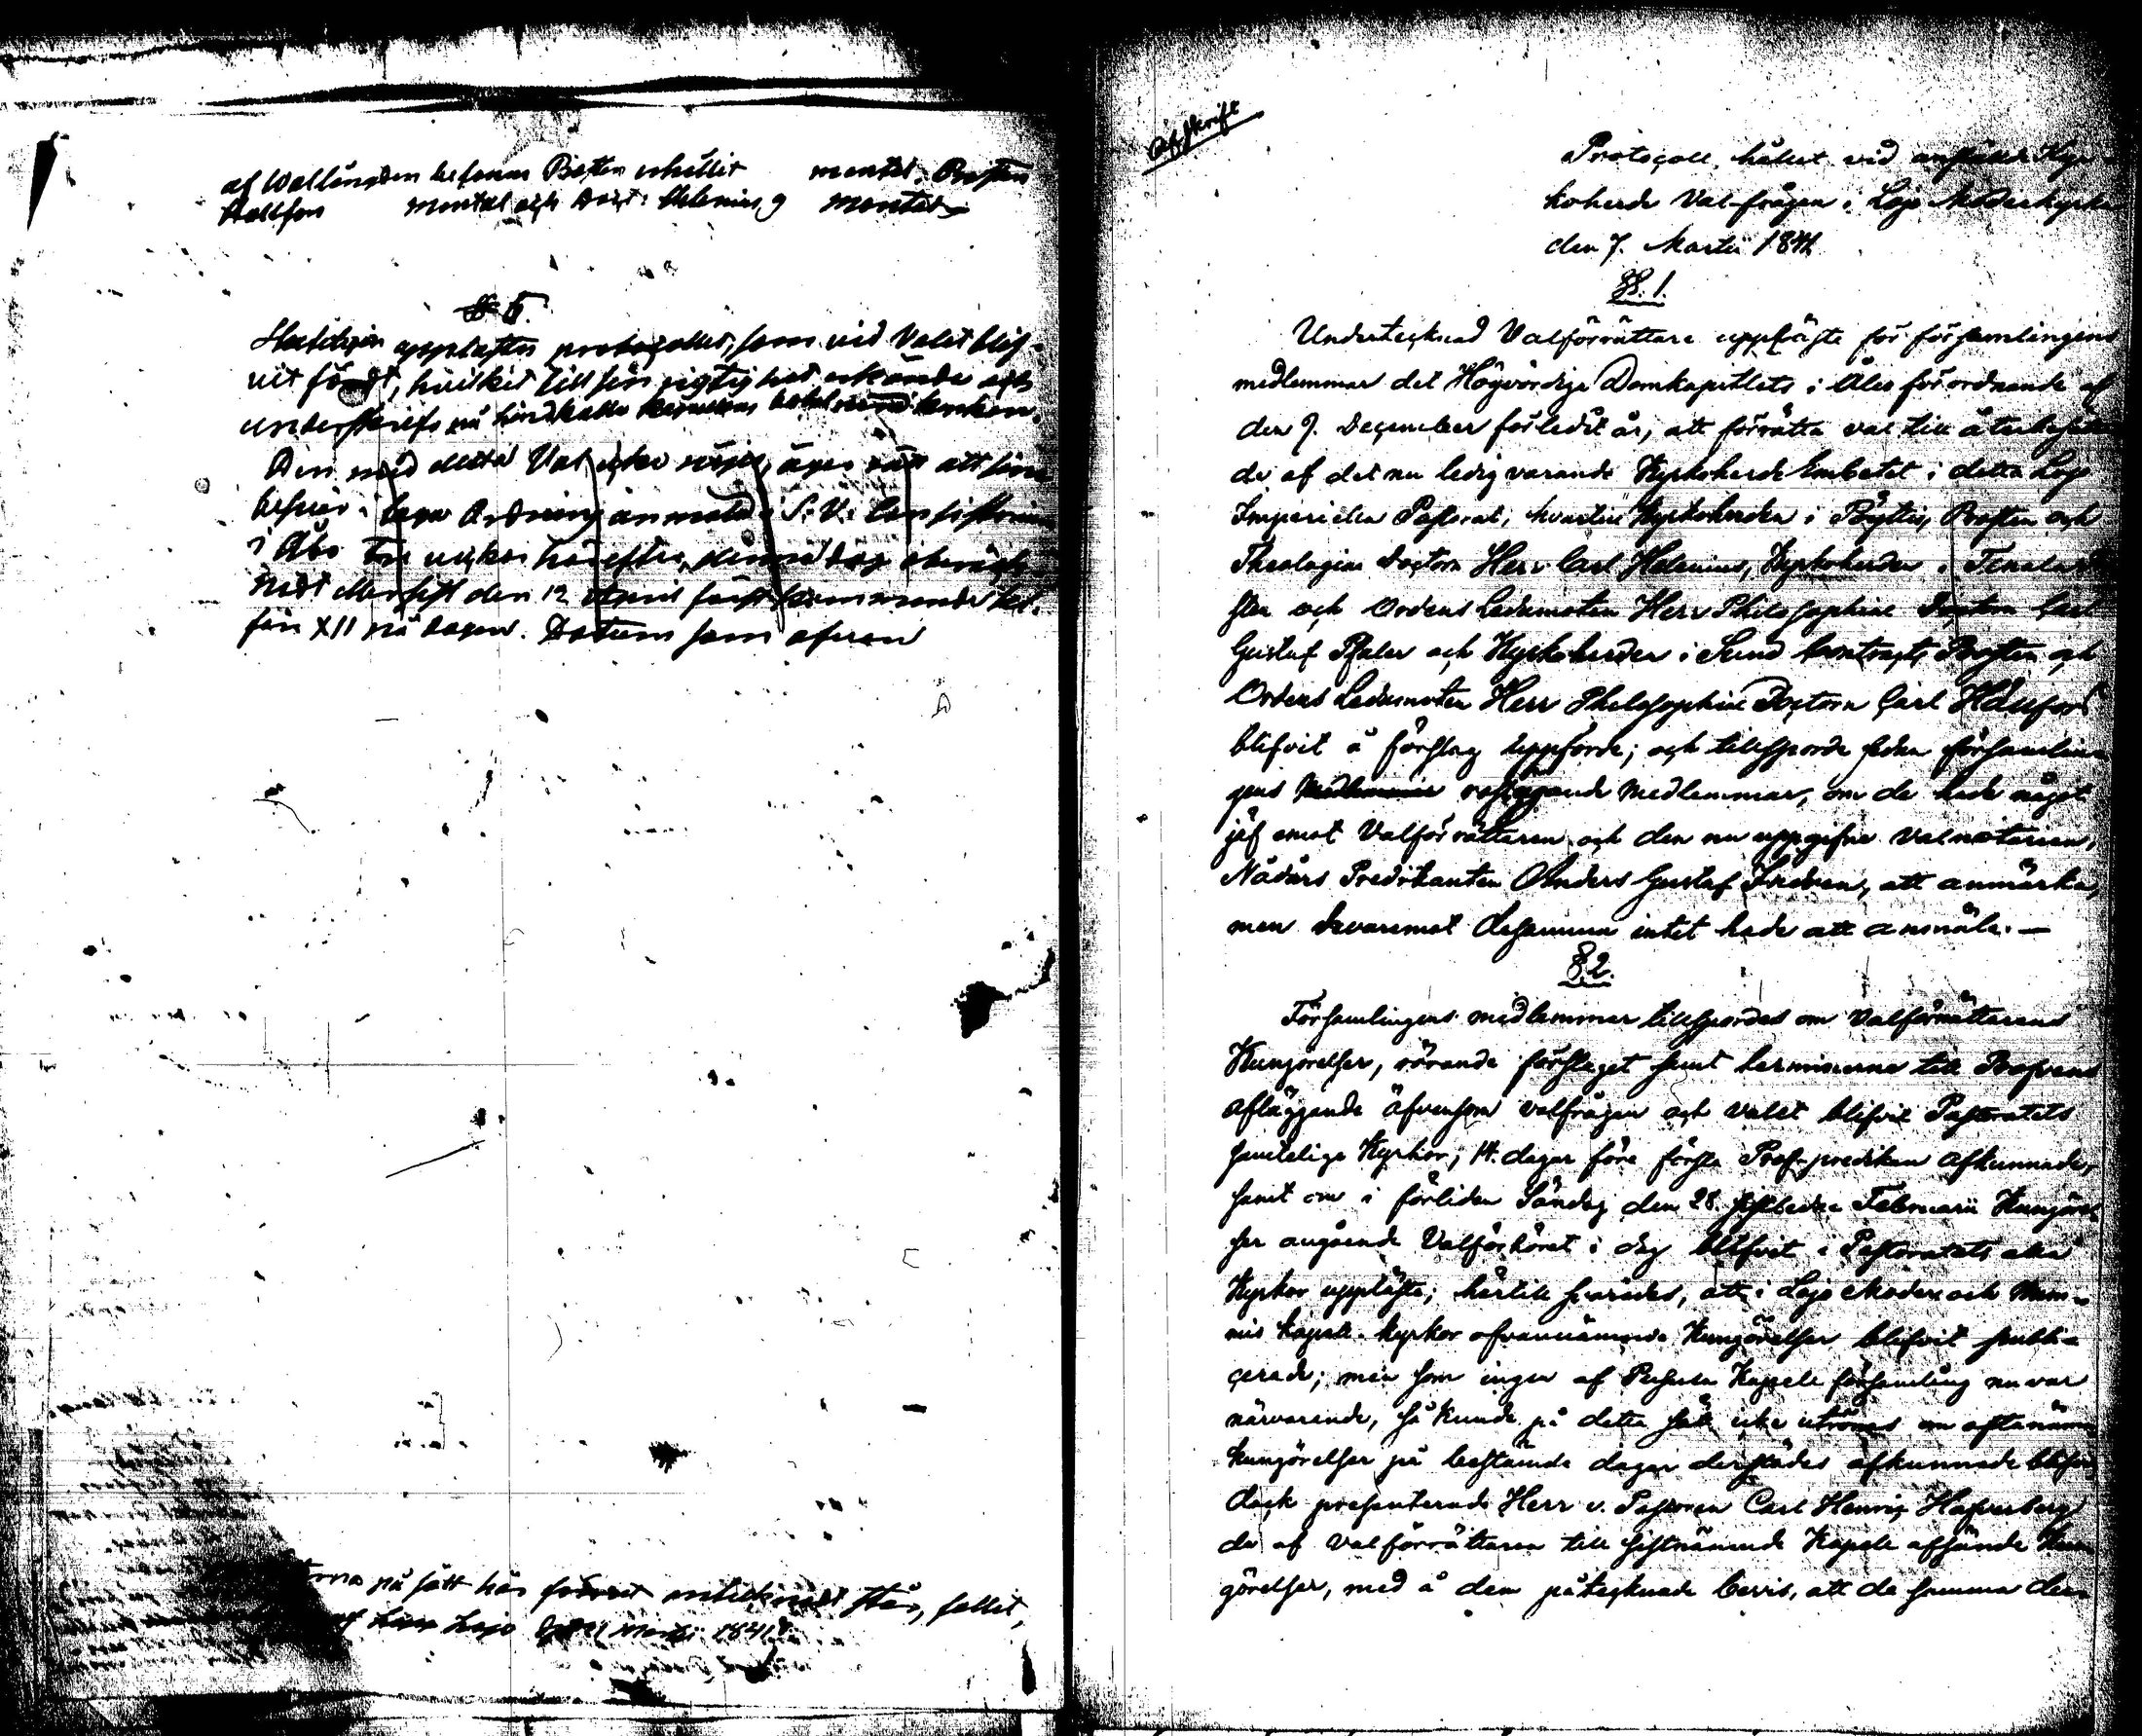 af Wallúnden befanns Prosten erhållit mantal, Prosten
Hallfors mantal och Doct: Helenius 9 mantal
§ 5.
upplästes protocollet, som vid Valet blif-
vit fördt, hvilket till sin rigtighet erkändes och
underskrefs på
Den med detta Val icke nöjes, äger rätt att sina
besvär i laga Ordning anmäla i S. V. Consistorium
i Åbo
sist den 12 April först kommande kl.
före XII på dagen. Datum som ofvan
på sätt här förut antecknadt står, fallit,
Lojo Martii 1841
Afskrift
Protocoll, hållet vid anstäld Kyr-
koherde Val-frågan i Lojo Moderkyrka
den 7. Martii 1841
§§. 1.
Undertecknad Valförrättare uppläste för församlingens
medlemmar det Högvördige Domkapitlets i Åbo förordnande af
den 9. December förledit år, att förrätta val till återbesättan-
de af det nu ledig varande Kyrkoherde Embetet i detta Lojo
Imperiella Pastorat, hvartill Kyrkoherden i Pöyttis, Prosten och
Theologiae Doctorn Herr Carl Helenius, Kyrkoherden i Tenala
och Ordens Ledamoten Herr Philosophiae Doctorn Carl
Gustaf Pfaler och Kyrkoherden i Sund Contracts Prosten och
Ordens Ledamoten Herr Philosophiae Doctorn Carl Hällfors
blifvit å förslag uppförde; och tillsporde sedan församlin-
gens röstägande Medlemmar, om de hade något
jäf emot Valförrättaren och den nu uppgifne valnotarien,
Nådårs Predikanten Anders Gustaf att anmärka,
men hvaremot desamma intet hade att anmäla. —
§ 2.
Församlingens medlemmar tillspordes om Valförrättarens
Kungörelser, rörande förslaget samt terminerna till Profvens
afläggande äfvensom valfrågan och valet blifvit Pastoratets
samtelige Kyrkor, 14. dagar före första Prof-predikan afkunnade,
samt om i förliden Söndag den 28. sistledne Februarii Kungörel-
ser angående Valförhöret i dag blifvit i Pastoratets alla
Kyrkor uppläste; härtill svarades, att i Lojo Moder och Num-
mis Kapell-kyrkor ofvannämnde Kungörelser blifvit publi-
cerade; men som ingen af Pusula Kapell församling nu var
närvarande, så kunde på detta sätt icke utrönas om oftanämnde
kungörelser på bestämde dagar derstädes afkunnade blifvit
dock presenterade Herr v. Pastoren Carl Henric Hafverberg
de af valförrättaren till sistnämnde Kapell afsände Kun-
görelser, med å dem påtecknade bevis, att de samma den